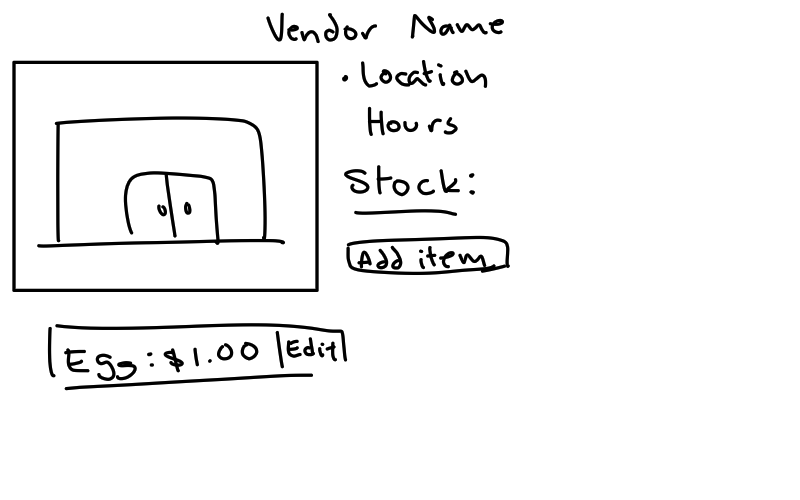 Vendor Name
• Location
Hours
Stock:
Add item
Egg: $1.00 Edit